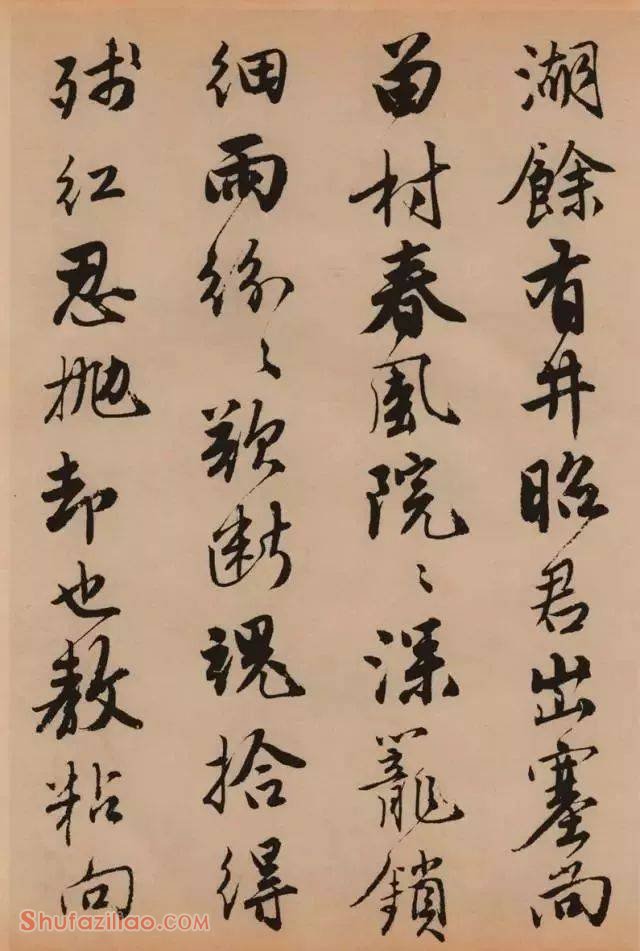 湖餘有井昭君出塞尚
留村春風院〻深籠鎖
細雨紛〻欲斷魂拾得
殘紅忍拋却也教粘向
Shufaziliao.com